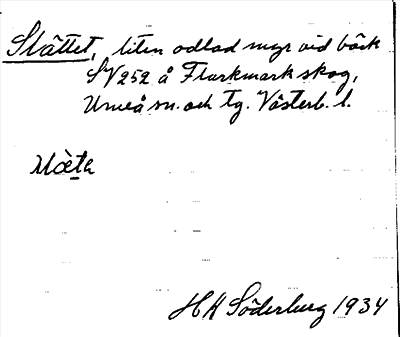 Slåttet, liten odlad myr vid bäck
SV 252 å Flarkmark skog,
Umeå sn. och tg. Västerb. l.
H K Söderberg 1934